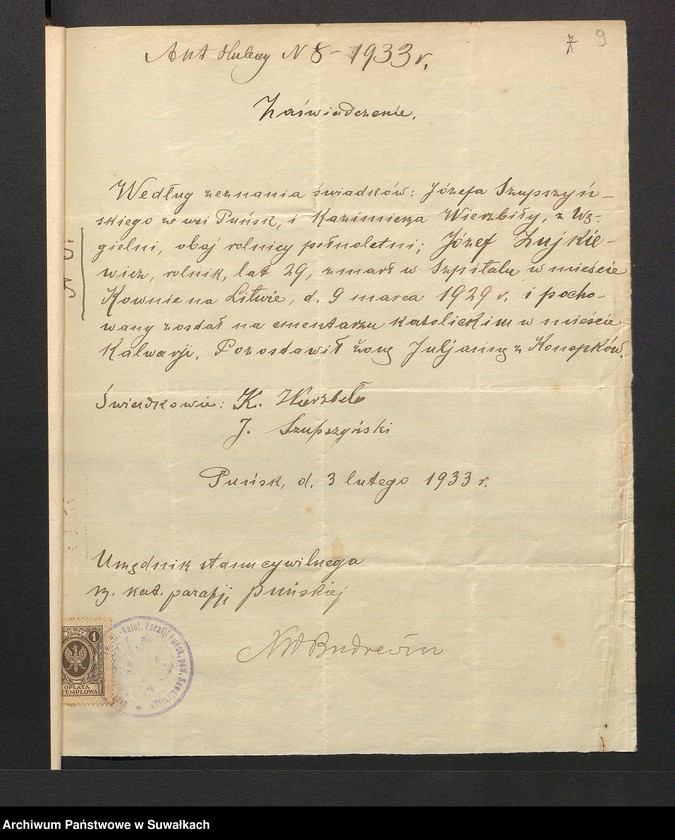 Akt ślubny N 8 – 1933 r.
7 9
Zaświadczenie.
Według zeznania świadków: Józefa Szupszyń-
skiego ze wsi Puńsk, i Kazimierza Wierzbiły, z Wą-
gielni, obaj rolnicy pełnoletni; Józef Zujkie-
wicz, rolnik, lat 29, zmarł w Szpitalu w mieście
Kownie na Litwie, d. 9 marca 1929 r. i pocho-
wany został na cmentarzu katolickim w mieście
Kalwarji. Pozostawił żonę Juljannę z Konopków.
Świadkowie: K. Wierzbiło
J. Szupszyński
Puńsk, d. 3 lutego 1933 r.
Urzędnik stanu cywilnego
rz. kat. parafji puńskiej
1
OPŁATA
STEMPLOWA
Katol. Parafji Puńsk, pow. Suwalskiego
Archiwum Państwowe w Suwałkach